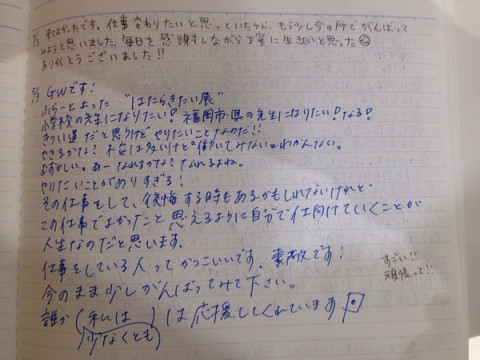 5/3 来てよかったです。仕事変わりたいと思っていたけど、もう少し今の所でがんばって
みようと思いました。毎日を感謝しながら丁寧に生きたいと思った
ありがとうございました!!
5/3 GWです!
ふらーとよった "はたらきたい展"
小学校の先生になりたい!福岡市・県の先生になりたい!なる!
きつい道だと思うけどやりたいことなのだ!!
できるかな?不安は多いけど"働いてみないとわかんない。
むずかしい。あー なれるかな?なれるよね。
やりたいことがありすぎる!
その仕事をして、後悔する時もあるかもしれないけれど、
この仕事でよかったと思えるように自分で仕向けていくことが
人生なのだと思います。
仕事をしている人ってかっこいいです。素敵です!
今のまま少しがんばってみて下さい。
すごい!!
頑張って!!
誰か(私は)は応援してくれています
少なくとも